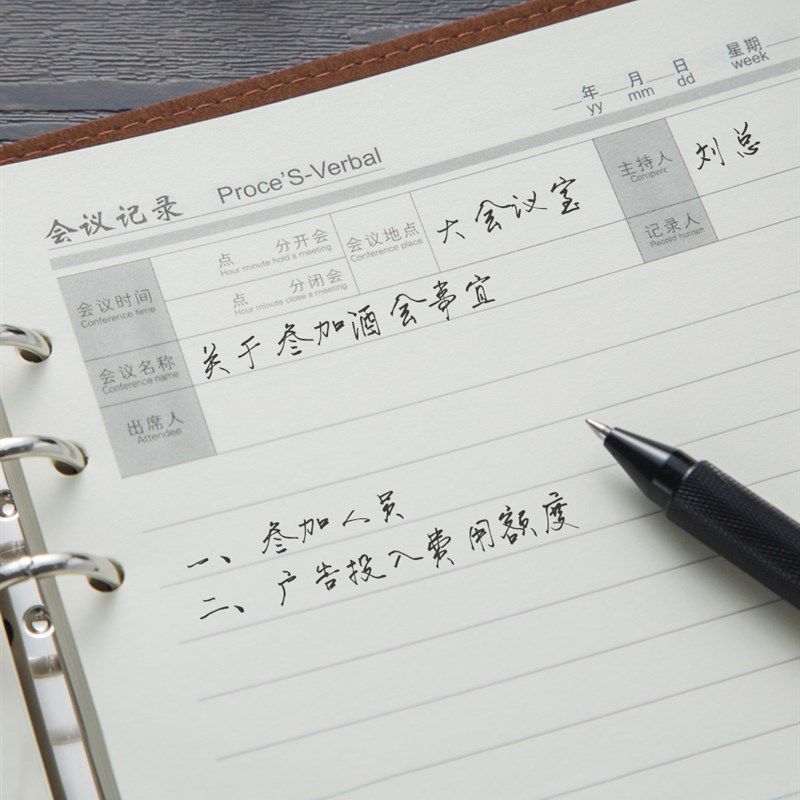 年 月 日 星期
yy mm dd week
会议记录 Proce'S-Verbal
会议时间 点 分开会 会议地点 大会议室 主持人 刘总
Conference time Hour minute hold a meeting Conference place Compere
点 分闭会 记录人
Hour minute close a meeting Record human
会议名称 关于参加酒会事宜
Conference name
出席人
Attendee
一、参加人员
二、广告投入费用额度